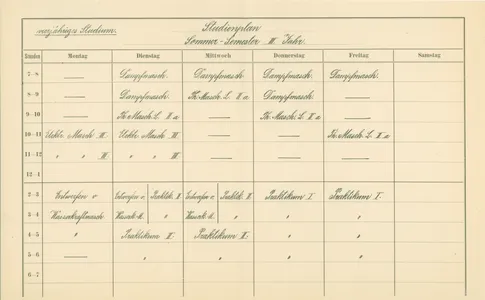 vierjähriges Studium.
Studienplan
Sommer-Semester III. Jahr.
Stunden Montag Dienstag Mittwoch Donnerstag Freitag Samstag
7–8 — Dampfmasch. Dampfmasch. Dampfmasch. Dampfmasch.
8–9 — Dampfmasch. Th. Masch. L. II a Dampfmasch. —
9–10 — Th. Masch. L. II a — Th. Masch. L. II a —
10–11 Masch. III. Masch. III — — Th. Masch. L. II a
11–12 " " III. " " III — — —
12–1
2–3 Entwerfen v. Entwerfen v. Praktik. II. Entwerfen v. Praktik. II. Praktikum I. Praktikum I.
3–4 Wasserkraftmasch " " " "
4–5 " Praktikum II. Praktikum II. " "
5–6 — " " " "
6–7